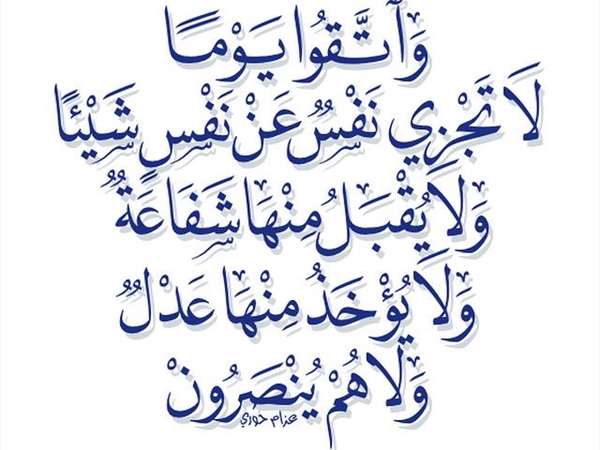 وَاتَّقُوا يَوْمًا
لَا تَجْزِي نَفْسٌ عَنْ نَفْسٍ شَيْئًا
وَلَا يُقْبَلُ مِنْهَا شَفَاعَةٌ
وَلَا يُؤْخَذُ مِنْهَا عَدْلٌ
وَلَا هُمْ يُنْصَرُونْ
عزام حوري